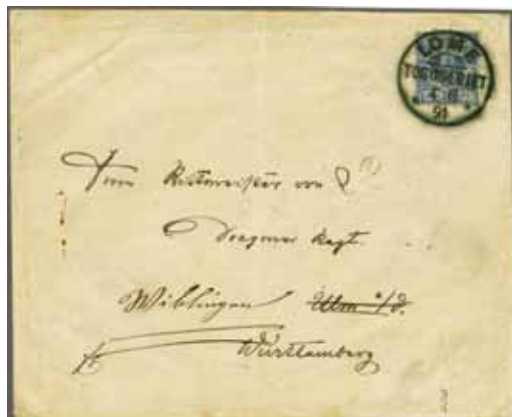 LOME
TOGOGEBIET
91
Rittmeister von
Dragoner Regt.
Wiblingen Ulm a/D.
Württemberg